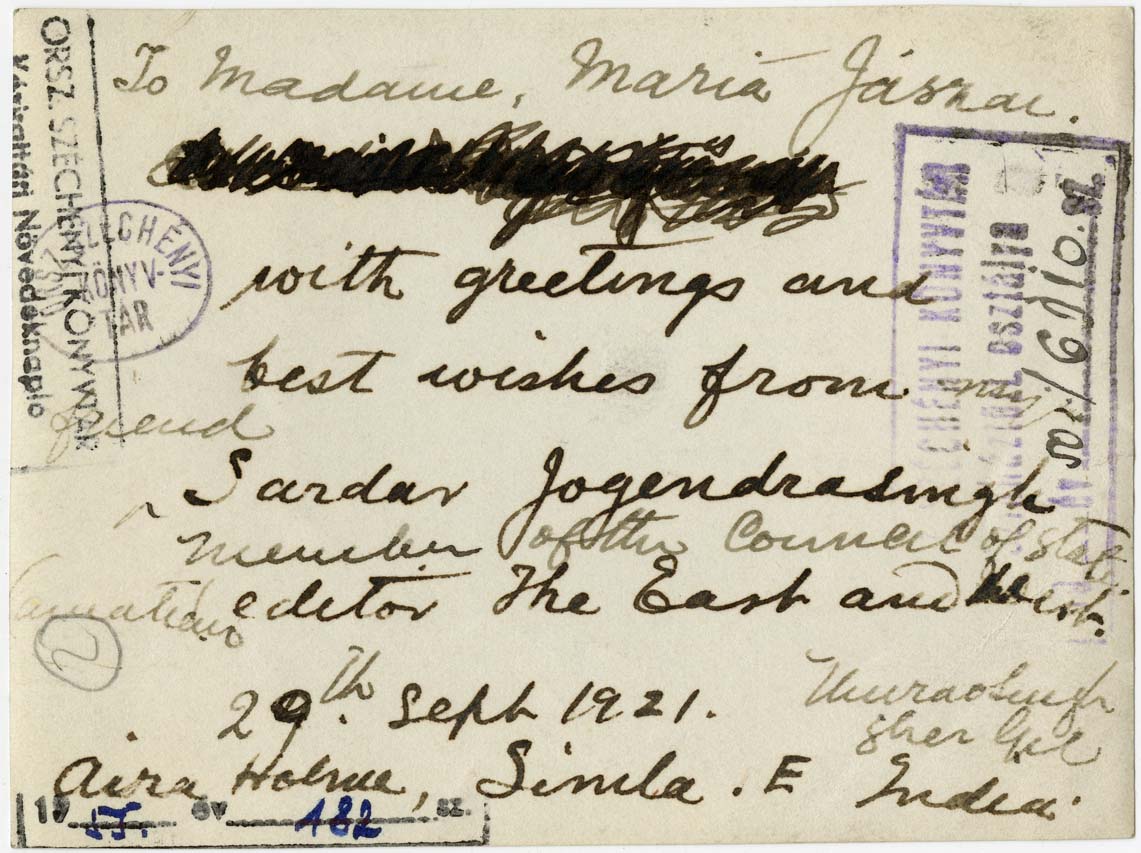 To Madame, Maria Jászai.
with greetings and
best wishes from my
friend
Sardar Jogendrasingh
member of the Council of State
editor The East and West.
29th. Sept 1921.
Umraosingh
Sher Gil
Aira Holme, Simla. E India.
ORSZ. SZÉCHÉNYI KÖNYVTÁR
Kézirattári Növedéknapló
SZÉCHÉNYI
KÖNYV-
TÁR
SZÉCHÉNYI KÖNYVTÁR
osztálya
sz.
2
19 57. év 182 sz.